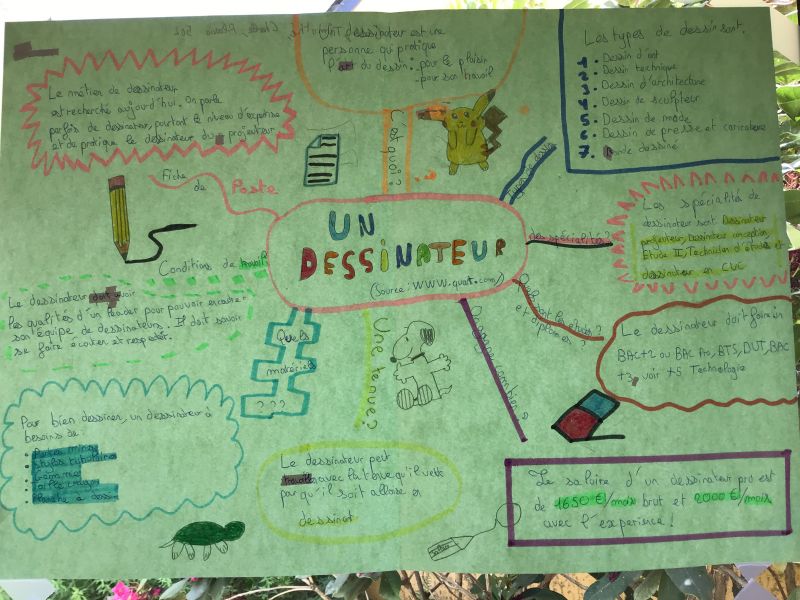 dessinateur est une
personne qui pratique
l'art du dessin : - pour le plaisir
- pour son travail
C'est quoi ?
Les types de dessin sont.
1. Dessin d'art
2. Dessin technique
3. Dessin d'architecture
4. Dessin de sculpteur
5. Dessin de mode
6. Dessin de presse et caricature
7. Bande dessiné
Types de dessin
Le métier de dessinateur
est recherché aujourd'hui. On parle
parfois de dessinateur, pourtant le niveau d'expertise
et de pratique le dessinateur du projeteur
Fiche
de Poste
UN
DESSINATEUR
(Source : WWW.
des spécialités ?
Les spécialités de
dessinateur sont Dessinateur
projeteur, Dessinateur conception,
Etude II, Technicien d'études et
dessinateur en
Conditions de travail
Le dessinateur doit avoir
les qualités d'un leader pour pouvoir encadrer
son équipe de dessinateurs. Il doit savoir
se faire écouter et respecter.
Quels sont les études ?
et diplômes ?
Le dessinateur doit faire un
BAC+2 ou BAC Pro, BTS, DUT, BAC
+3, voir +5 Technologie
Quels
matériels
???
Pour bien dessiner, un dessinateur à
besoins de :
Gomme
Planche à
Une tenue ?
Le dessinateur peut
travailler avec la tenue qu'il veut
par qu'il soit à l'aise en
dessinant
combien ?
Le salaire d'un dessinateur pro est
de 1650 €/mois brut et 2000 €/mois
avec l'experience !